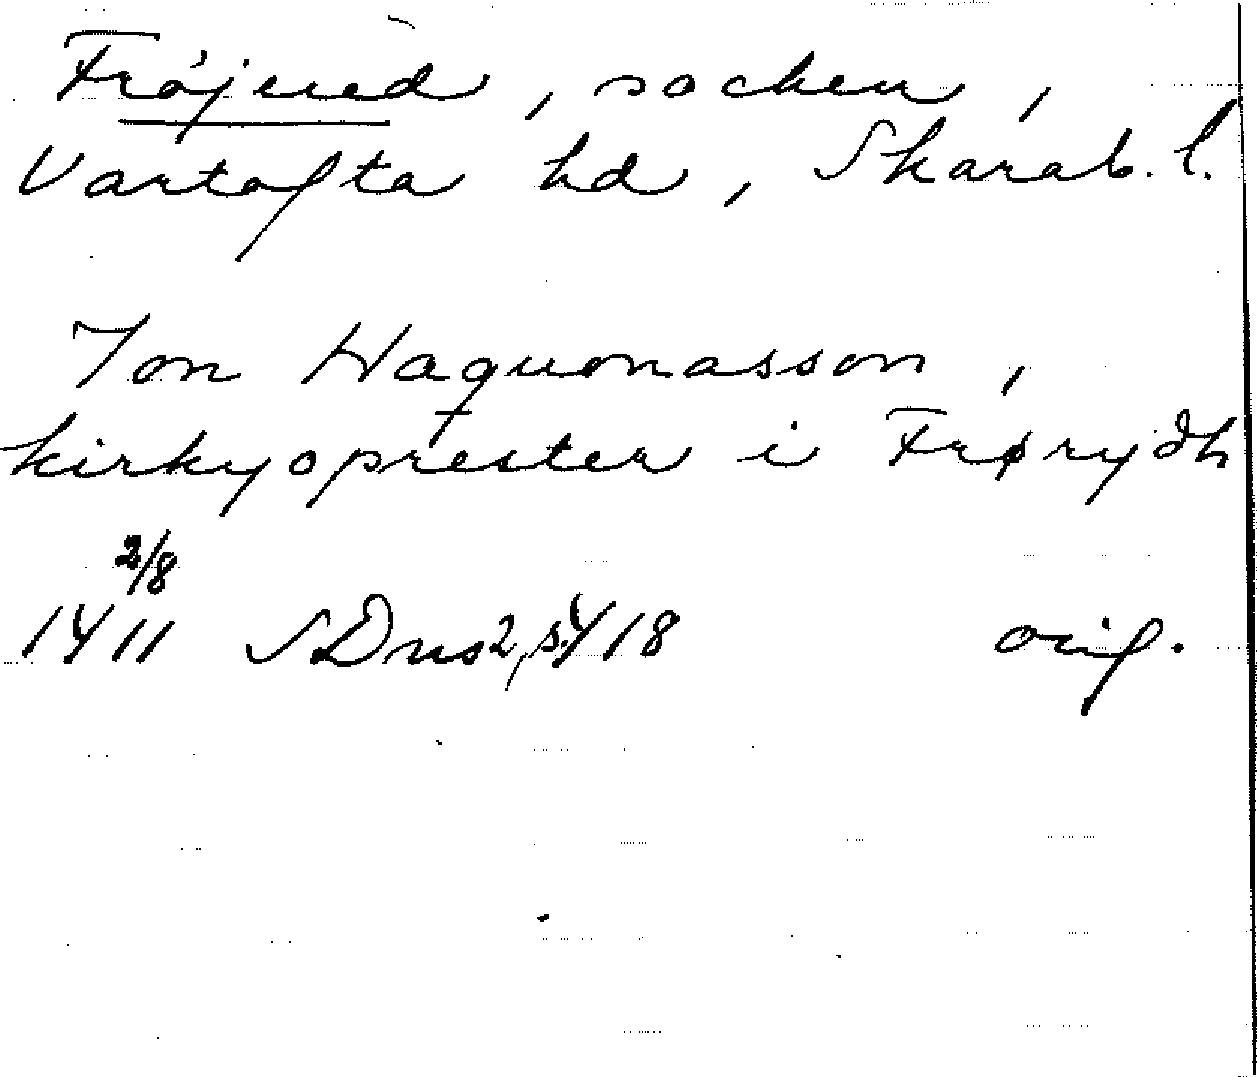 Fröjered, socken,
Vartofta hd, Skarab. l.
Jon Haquonasson,
kirkyoprester i Frørydh
2/8
1411 SDns 2, s. 418 orig.